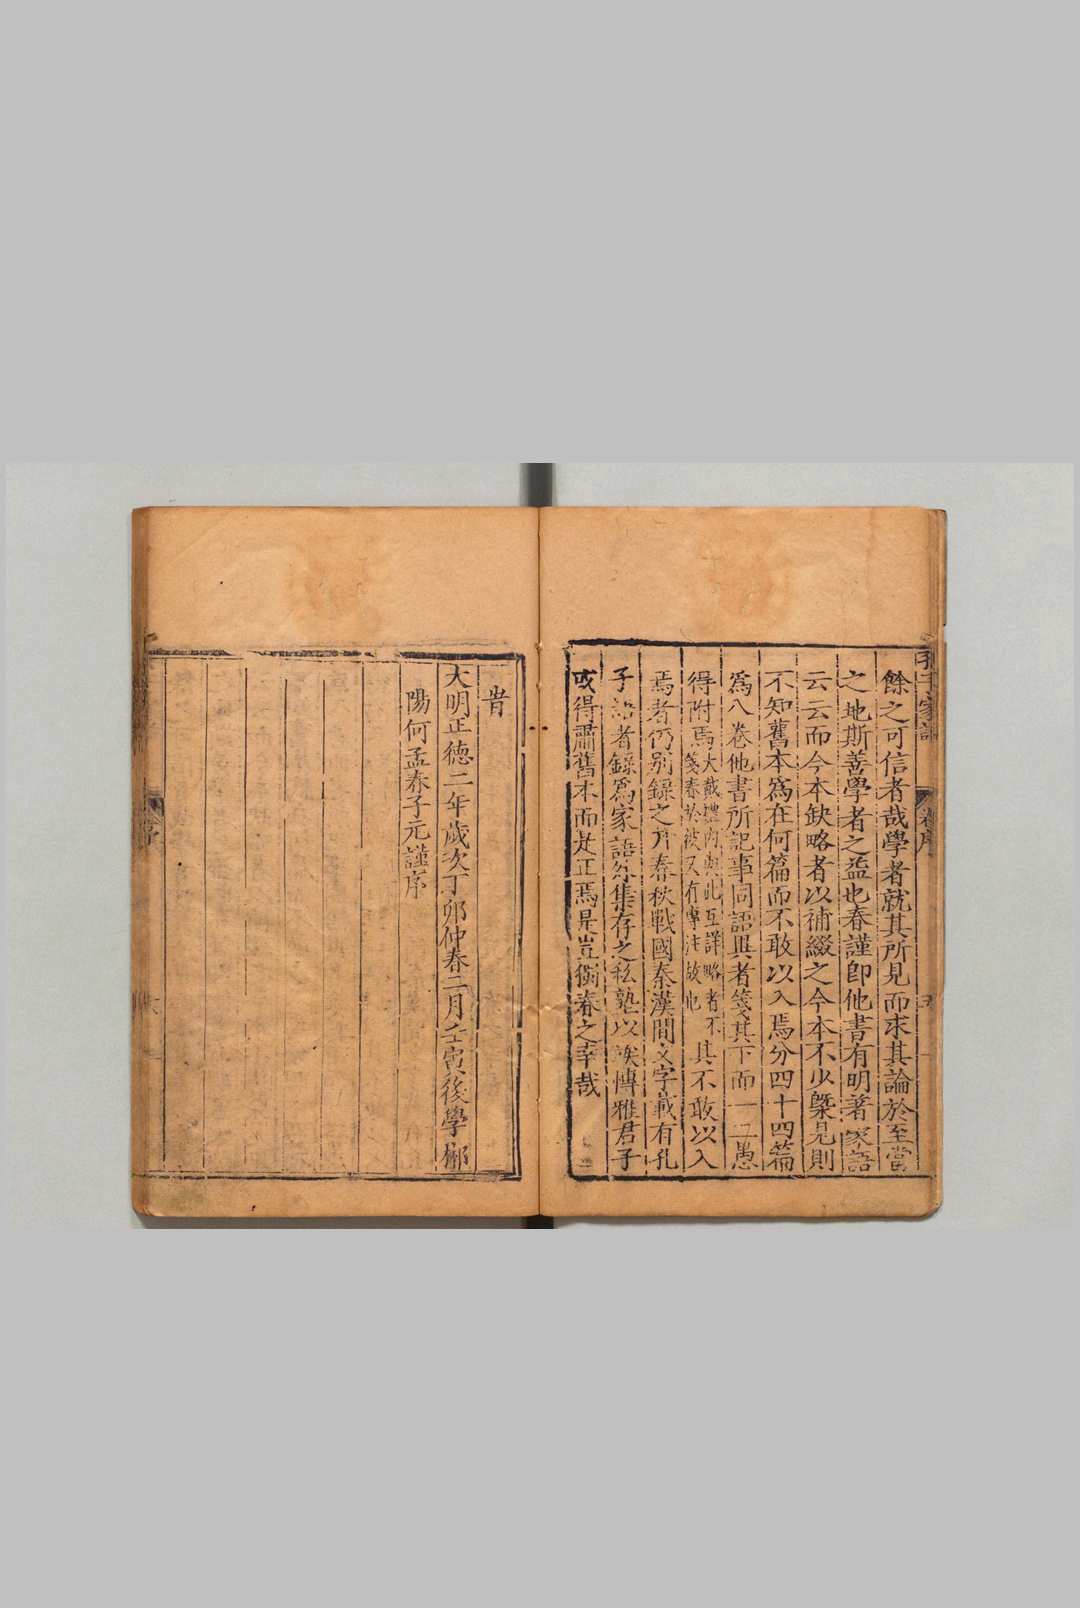 餘之可信者哉學者就其所見而求其論於至當
之地斯善學者之益也春謹卽他書有明著家語
云云而今本缺略者以補綴之今本不少槩見則
不知舊本爲在何篇而不敢以入焉分四十四篇
爲八卷他書所記事同語異者箋其下而一二愚
得附焉
大戴禮內與此互詳略者不
箋春於彼又有專注故也
其不敢以入
焉者仍別錄之幷春秋戰國秦漢間文字載有孔
子語者錄爲家語外集存之私塾以俟博雅君子
或得肅舊本而是正焉是豈獨春之幸哉
旹
大明正德二年歲次丁卯仲春二月壬寅後學郴
陽何孟春子元謹序